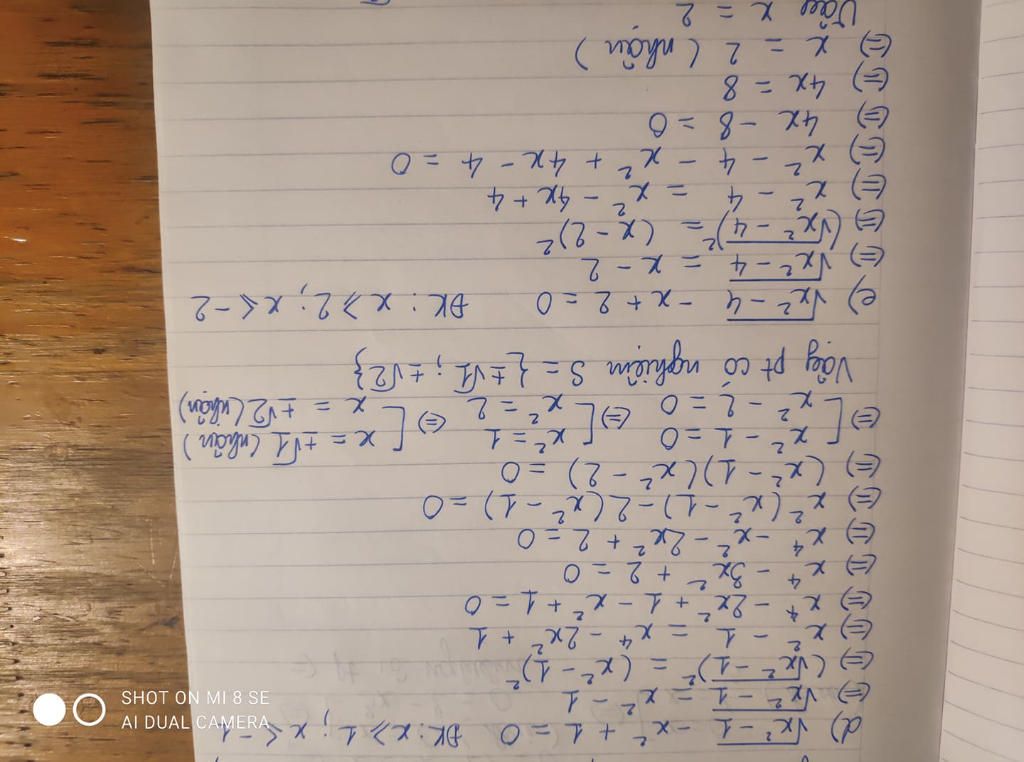 d) √x² - 1 - x² + 1 = 0 ĐK: x ⩾ 1; x ⩽ -1
⇔ √x² - 1 = x² - 1
⇔ (√x² - 1)² = (x² - 1)²
⇔ x² - 1 = x⁴ - 2x² + 1
⇔ x⁴ - 2x² + 1 - x² + 1 = 0
⇔ x⁴ - 3x² + 2 = 0
⇔ x⁴ - x² - 2x² + 2 = 0
⇔ x²(x² - 1) - 2(x² - 1) = 0
⇔ (x² - 1)(x² - 2) = 0
⇔ [ x² - 1 = 0 ⇔ [ x² = 1 ⇔ [ x = ±√1 (nhận)
x² - 2 = 0 x² = 2 x = ±√2 (nhận)
Vậy pt có nghiệm S = {±√1; ±√2}
e) √x² - 4 - x + 2 = 0 ĐK: x ⩾ 2; x ⩽ -2
⇔ √x² - 4 = x - 2
⇔ (√x² - 4)² = (x - 2)²
⇔ x² - 4 = x² - 4x + 4
⇔ x² - 4 - x² + 4x - 4 = 0
⇔ 4x - 8 = 0
⇔ 4x = 8
⇔ x = 2 (nhận)
Vậy x = 2
SHOT ON MI 8 SE
AI DUAL CAMERA